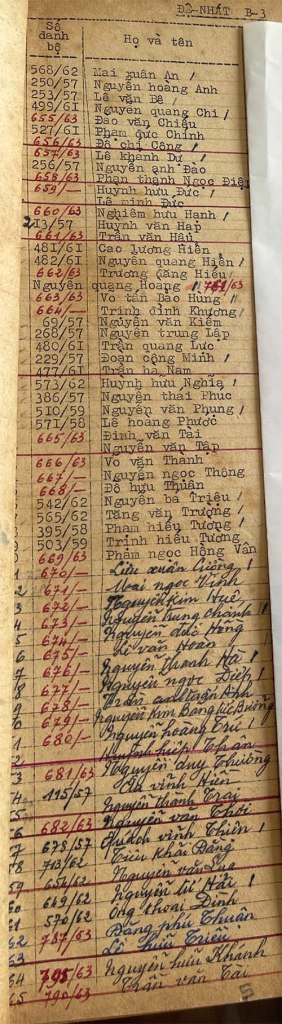 ĐỆ-NHẤT B-3
Số danh bộ
Họ và tên
568/62 Mai xuân An /
250/57 Nguyễn hoàng Anh
253/57 Lê văn Bê /
499/61 Nguyễn quang Chi /
655/63 Đào văn Chiếu
527/61 Phạm đức Chính
656/63 Đỗ chí Công /
657/63 Lê khánh Dư /
256/57 Nguyễn anh Đào
658/63 Phan thành Ngọc Điệp
659/— Huỳnh hữu Đức /
Lê minh Đức
660/63 Nghiêm hữu Hạnh /
213/57 Huỳnh văn Hạp
661/63 Trần văn Hậu
481/61 Cao lương Hiền
482/61 Nguyễn quang Hiển /
662/63 Trương đăng Hiếu /
Nguyễn quang Hoàng 761/63
663/63 Võ tấn Bảo Hùng /
664/— Trịnh đình Khương /
69/57 Nguyễn văn Kiếm
268/57 Nguyễn trung Lập
480/61 Trần quang Lực
229/57 Đoàn công Minh /
477/61 Trần bá Nam
573/62 Huỳnh hữu Nghĩa /
386/57 Nguyễn thái Phúc
510/59 Nguyễn văn Phụng /
571/58 Lê hoàng Phước
665/63 Đinh văn Tài
Nguyễn văn Tập
666/63 Võ văn Thành
667/— Nguyễn ngọc Thông
668/— Đỗ hữu Thuận
542/62 Nguyễn bá Triệu /
565/62 Tăng văn Trượng /
395/58 Phạm hiếu Tường /
503/59 Trịnh hiếu Tường
669/63 Phạm ngọc Hồng Vân
670/— Lưu xuân
671/— Mai ngọc Vinh
672/— Nguyễn Kim Huê
673/— Nguyễn hùng Chánh /
674/— Nguyễn đức Hồng
675/— Lê văn Hoan
676/— Nguyễn thanh Hà /
677/— Nguyễn ngọc Diệp /
678/— Trần Anh
679/— Nguyễn Kim Bằng
680/— Nguyễn hoàng Trí /
Huỳnh hiệp Thân
681/63 Nguyễn duy Thường
415/57 vĩnh Hiền
Nguyễn thành Trai
682/63 Nguyễn văn Thới
678/57 Quách vĩnh Thiên /
713/62 Tiêu Khải Đằng
654/62 Nguyễn văn
649/62 Nguyễn tú Hải /
570/62 Ông thoại Đình
787/63 Đặng phú Thuận
Lê hữu Triều
795/63 Nguyễn hữu Khánh
790/63 Trần văn Tài